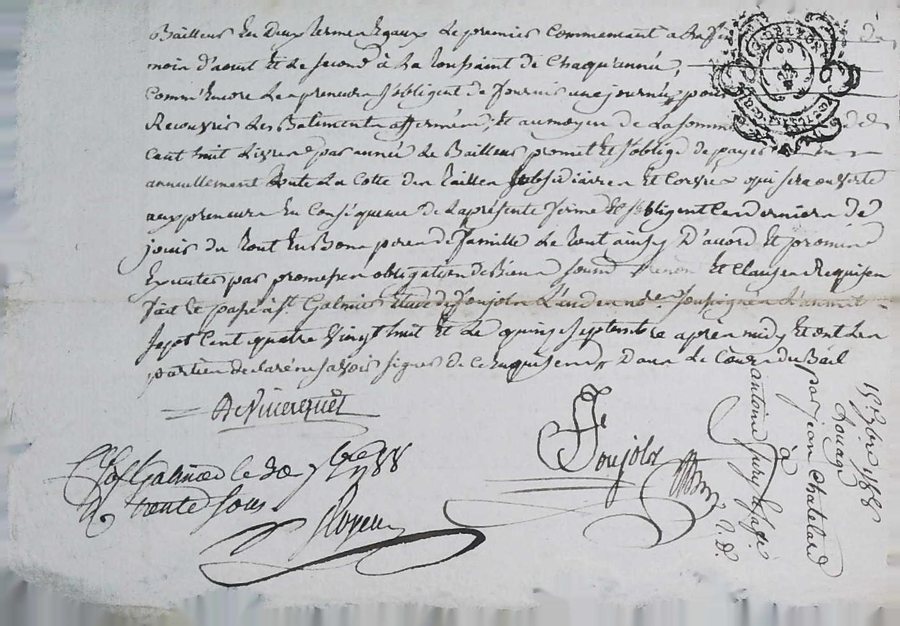 Bailleur En deux termes Egaux Le premier Commencant a La fin du
mois d'aoust Et Le second à La Toussaint de Chaqu'année,
Comm'Encore Les preneurs s'obligent de fournir une journée pour
Recouvrir Les Batiments affermés, Et au moyen de La somme de
Cent huit Livres par année Le Bailleur promet Et s'oblige de payer
annuellement toute La Cotte des Tailles subsidiaires Et Corvées qui sera ouverte
aux preneurs En Conséquence de La présente ferme Et s'obligent Ces derniers de
jouir du tout En Bons peres de famille Le tout ainsy D'acord Et promis
Executer par promesses obligation de Biens soumis Renon Et Clauses Requises
fait Et passé à st Galmier Etude de Soujolz L'un des nores soussignes L'an mil
sept Cent quatre Vingt huit Et Le quinze septembre après midy Et ont Les
parties declaré ne savoir signer de Ce Enquises Dans Le Cours du Bail
Soujolz
st Galmier le 30 7bre 1788
trente sous
15 7bre 1788
Louage
par jean Chatelard
à
antoine jury